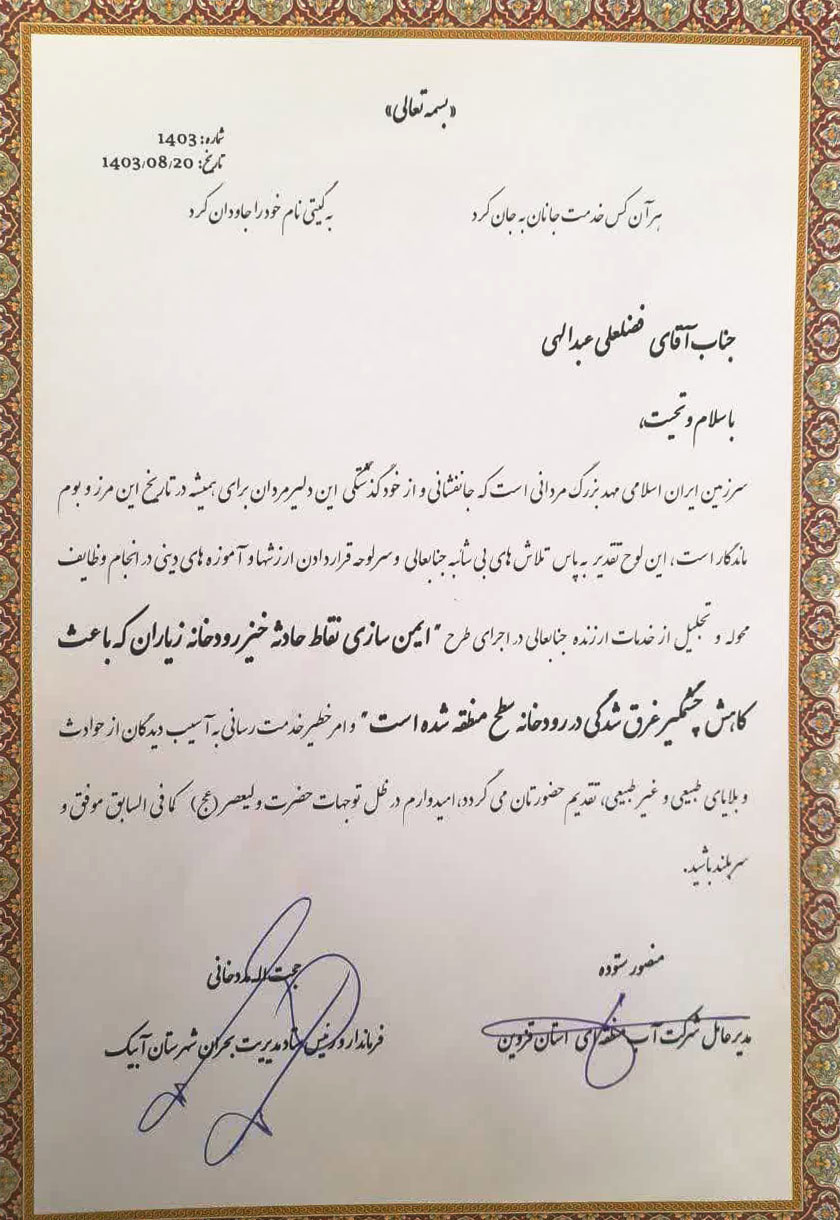 «بسمه تعالی»
شماره: 1403
تاریخ: 1403/08/20
هر آن کس خدمت جانان به جان کرد به گیتی نام خود را جاودان کرد
جناب آقای فضلعلی عبدالهی
با سلام و تحیت،
سرزمین ایران اسلامی مهد بزرگ مردانی است که جانفشانی و از خود گذشتگی این دلیرمردان برای همیشه در تاریخ این مرز و بوم
ماندگار است، این لوح تقدیر به پاس تلاش های بی شائبه جنابعالی و سرلوحه قرار دادن ارزشها و آموزه های دینی در انجام وظایف
محوله و تجلیل از خدمات ارزنده جنابعالی در اجرای طرح "ایمن سازی نقاط حادثه خیز رودخانه زیاران که باعث
کاهش چشمگیر غرق شدگی در رودخانه سطح منطقه شده است" و امر خطیر خدمت رسانی به آسیب دیدگان از حوادث
و بلایای طبیعی و غیر طبیعی، تقدیم حضورتان می گردد، امیدوارم در ظل توجهات حضرت ولیعصر (عج) کما فی السابق موفق و
سربلند باشید.
منصور ستوده
مدیرعامل شرکت آب منطقه ای استان قزوین
حجت اله مددخانی
فرماندار و رئیس ستاد مدیریت بحران شهرستان آبیک